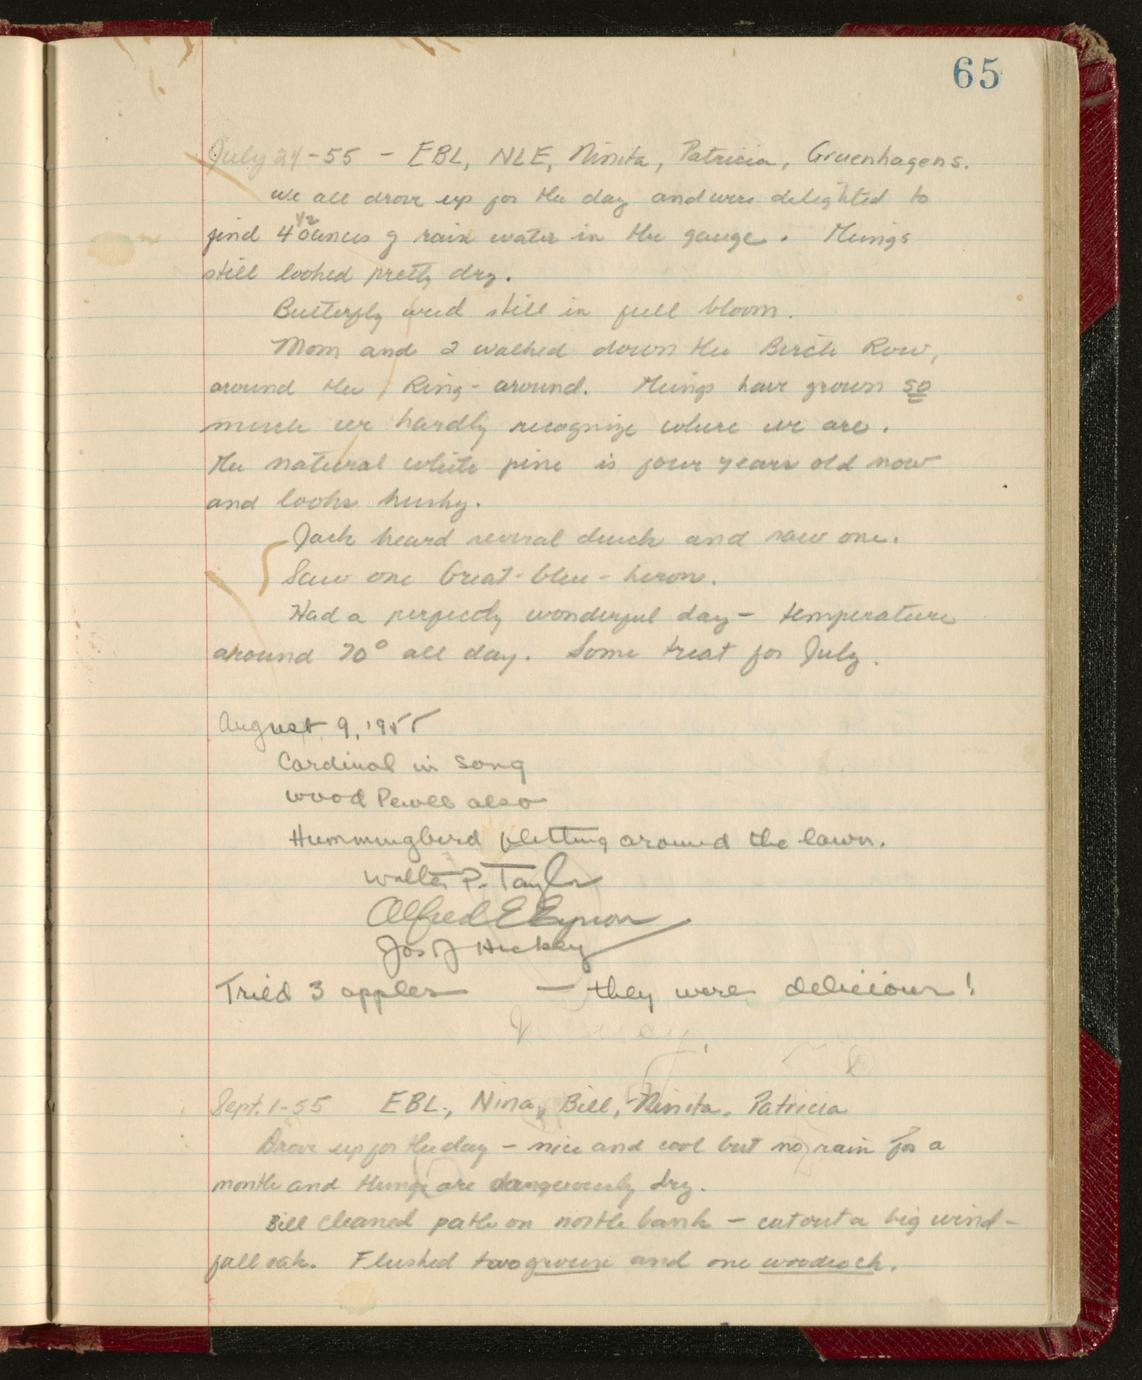 65
July 24-55 - EBL, NLE, Ninita, Patricia, Gruenhagens.
We all drove up for the day and were delighted to
find 4 1/2 ounces of rain water in the gauge. Things
still looked pretty dry.
Butterfly weed still in full bloom.
Mom and I walked down the Birch Row,
around the Ring-around. Things have grown so
much we hardly recognize where we are.
The natural white pine is four years old now
and looks husky.
Jack heard several duck and saw one.
Saw one Great-blue-heron.
Had a perfectly wonderful day - temperature
around 70° all day. Some treat for July.
August 9, 1955
Cardinal in song
Wood Pewee also
Hummingbird flitting around the lawn.
Walter P. Taylor
Alfred E
Jos J Hickey
Tried 3 apples - they were delicious!
Sept. 1-55 EBL, Nina, Bill, Ninita, Patricia
Drove up for the day - nice and cool but no rain for a
month and things are dangerously dry.
Bill cleaned path on north bank - cut out a big wind-
fall oak. Flushed two grouse and one woodcock.